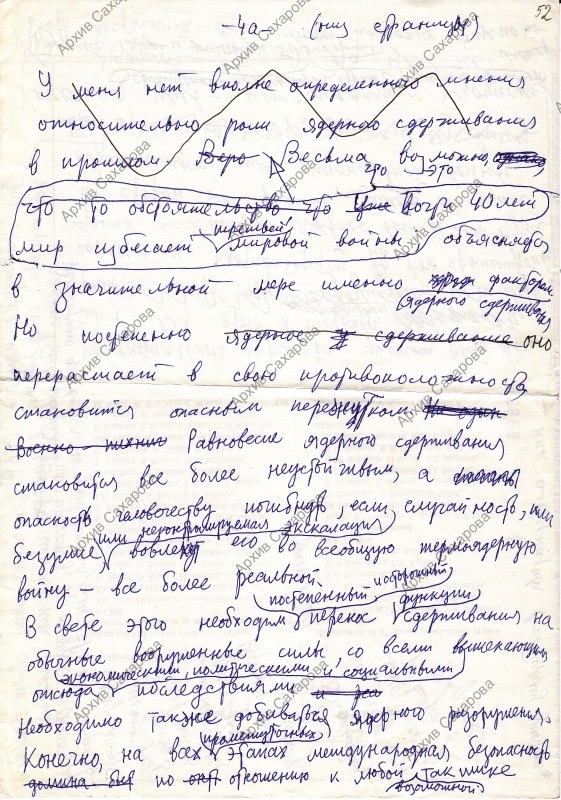 52
-4а- (низ страницы)
У меня нет вполне определенного мнения
относительно роли ядерного сдерживания
в прошлом Веро Весьма возможно, однако,
что это
что то обстоятельство что уже Почти 40 лет
третьей
мир избегает мировой войны, объясняется
в значительной мере именно фактором
ядерного сдерживания
Но постепенно ядерное сдерживание оно
перерастает в свою противоположность,
становится опасным пережитком.
Военно технич Равновесие ядерного сдерживания
становится все более неустойчивым, а
опасность человечеству погибнуть, если случайность, или
или неконтролируемая эскалация
безумие, вовлекут его во всеобщую термоядерную
войну – все более реальной.
постепенный осторожный
функции
В свете этого необходим перенос сдерживания на
обычные вооруженные силы, со всеми вытекающими
экономическими, политическими и социальными
отсюда последствиями
Необходимо также добиваться ядерного разоружения.
промежуточных
Конечно, на всех этапах международная безопасность
должна быт по отношению к любой тактике
возможной
Архив Сахарова